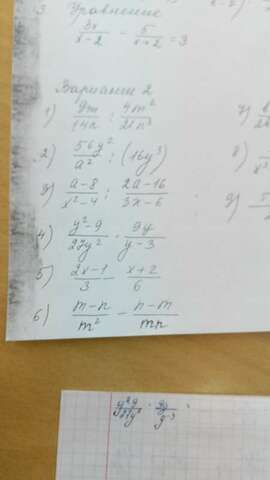 3 Уравнение
3x/x-2 - 5/x+2 = 3
Вариант 2
1) 9m/14n : 4m²/21n³
2) 56y²/a² : (16y³)
3) a-8/x²-4 : 2a-16/3x-6
4) y²-9/27y² · 9y/y-3
5) 2x-1/3 - x+2/6
6) m-n/m² - n-m/mn
7)
8)
9)